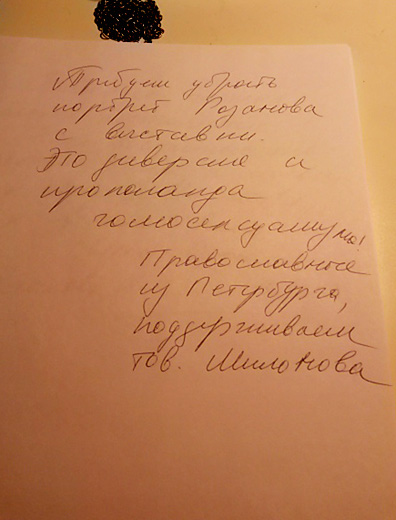 Требуем убрать
портрет Розанова
с выставки.
Это диверсия и
пропоганда
гомосексуализма!
Православные
из Петербурга,
поддерживаем
тов. Милонова